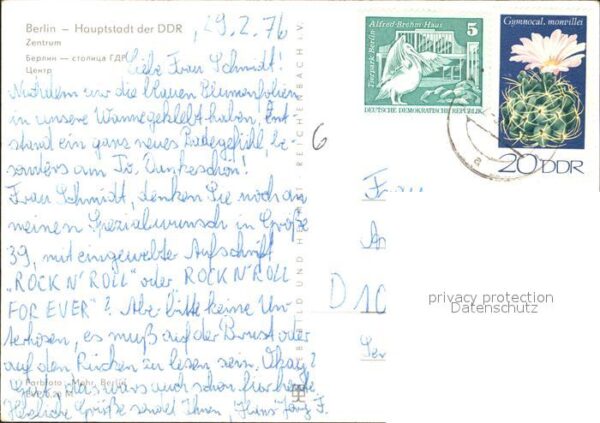 Berlin – Hauptstadt der DDR
Zentrum
Берлин — столица ГДР
Центр
29.2.76
Liebe Frau Schmidt!
Nachdem wir die blauen Blumenfolien
in unsere Wanne geklebt haben, ent-
stand ein ganz neues Badegefühl, be-
sonders am Dankeschön!
Frau Schmidt, denken Sie noch an
meinen Spezialwunsch in Größe
39, mit eingewebter Aufschrift
„ROCK N' ROLL" oder „ROCK N' ROLL
FOR EVER"? Aber bitte keine Un-
terhosen, es muß auf der Brust oder
auf den Rücken zu lesen sein. Okay?
das wärs auch schon für heute
Herzliche Grüße sendet Ihnen, Hans F.
Farbfoto – Mohr, Berlin
REICHENBACH i. V.
BILD UND HEIMAT
6
Alfred-Brehm-Haus
5
Tierpark Berlin
DEUTSCHE DEMOKRATISCHE REPUBLIK
Gymnocal. monvillei
20 DDR
a
Frau
D 10
privacy protection
Datenschutz